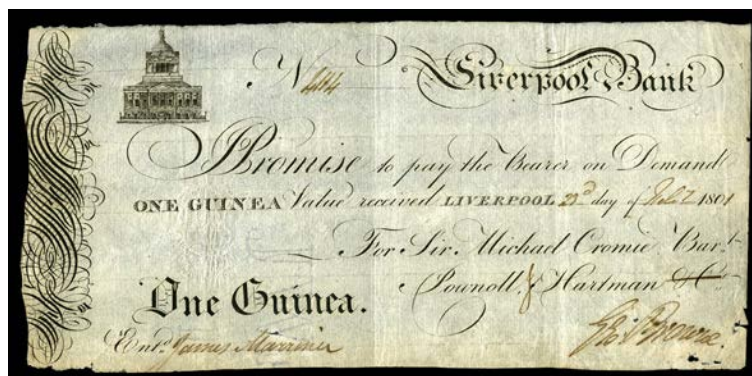 No 444 Liverpool Bank
I Promise to pay the Bearer on Demand
ONE GUINEA Value received LIVERPOOL 23d day of 1801
For Sir Michael Cromie Bart.
Pownoll & Hartman
One Guinea.
Entd. James Marriner
Geo Browne